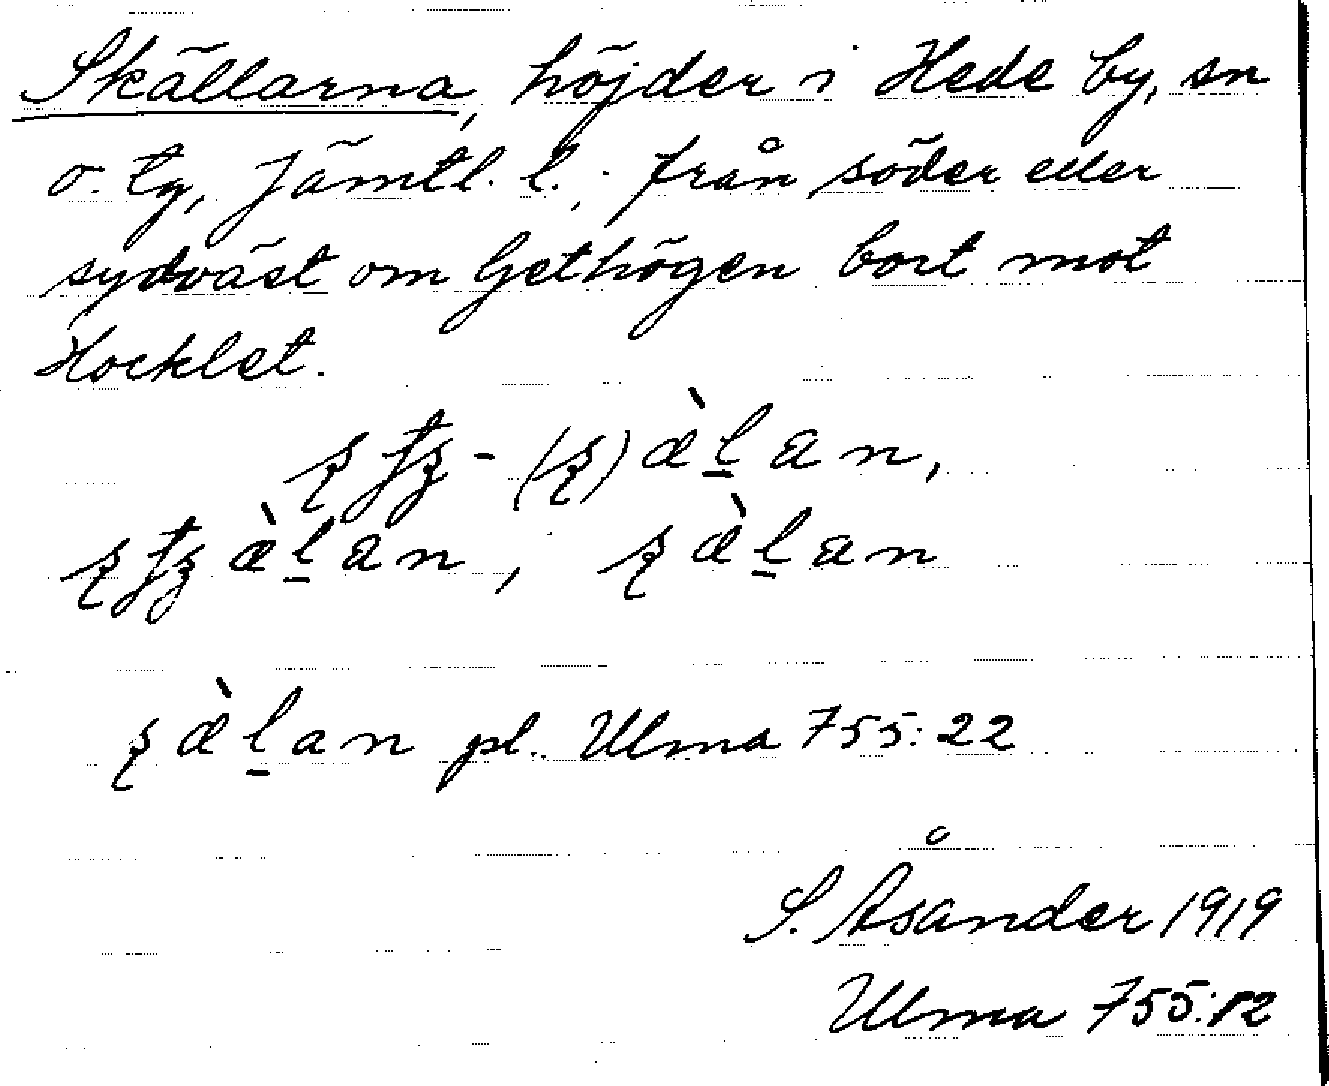 Skällarna, höjder i Hede by, sn
o. tg, Jämtl. l.; från söder eller
sydväst om Gethögen bort mot
Hocklet.
àḻan,
àḻan, àḻan
àḻan pl. Ulma 755:22
S. Åsander 1919
Ulma 755:82